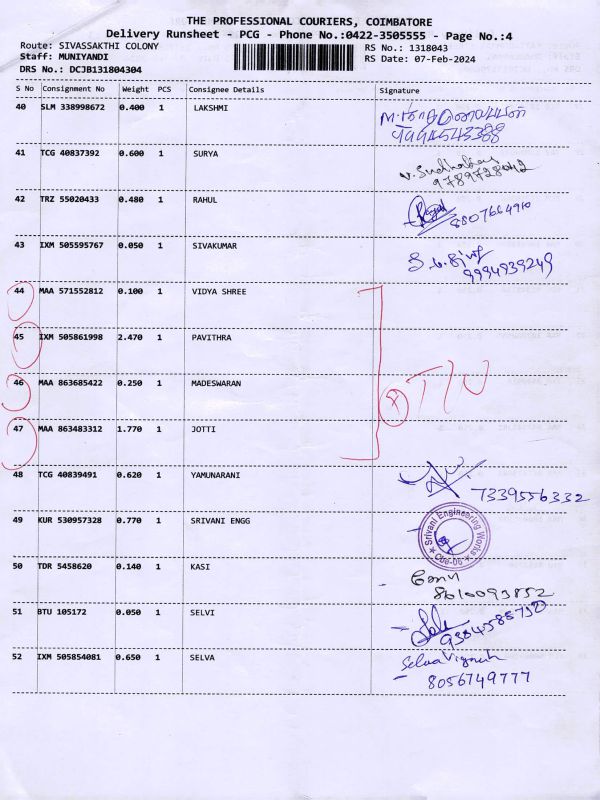 THE PROFESSIONAL COURIERS, COIMBATORE
Delivery Runsheet - PCG - Phone No.:0422-3505555 - Page No.:4
Route: SIVASSAKTHI COLONY RS No.: 1318043
Staff: MUNIYANDI RS Date: 07-Feb-2024
DRS No.: DCJB131804304
S No Consignment No Weight PCS Consignee Details Signature
40 SLM 338998672 0.400 1 LAKSHMI
9994543388
41 TCG 40837392 0.600 1 SURYA
9789728042
42 TRZ 55020433 0.480 1 RAHUL
8807664910
43 IXM 505595767 0.050 1 SIVAKUMAR
9994939249
44 MAA 571552812 0.100 1 VIDYA SHREE
45 IXM 505861998 2.470 1 PAVITHRA
46 MAA 863685422 0.250 1 MADESWARAN
47 MAA 863483312 1.770 1 JOTTI
48 TCG 40839491 0.620 1 YAMUNARANI
7339556332
49 KUR 530957328 0.770 1 SRIVANI ENGG
Srivani Engineering Works
50 TDR 5458620 0.140 1 KASI
8610093852
51 BTU 105172 0.050 1 SELVI
52 IXM 505854081 0.650 1 SELVA
Selva Vignesh
8056749777